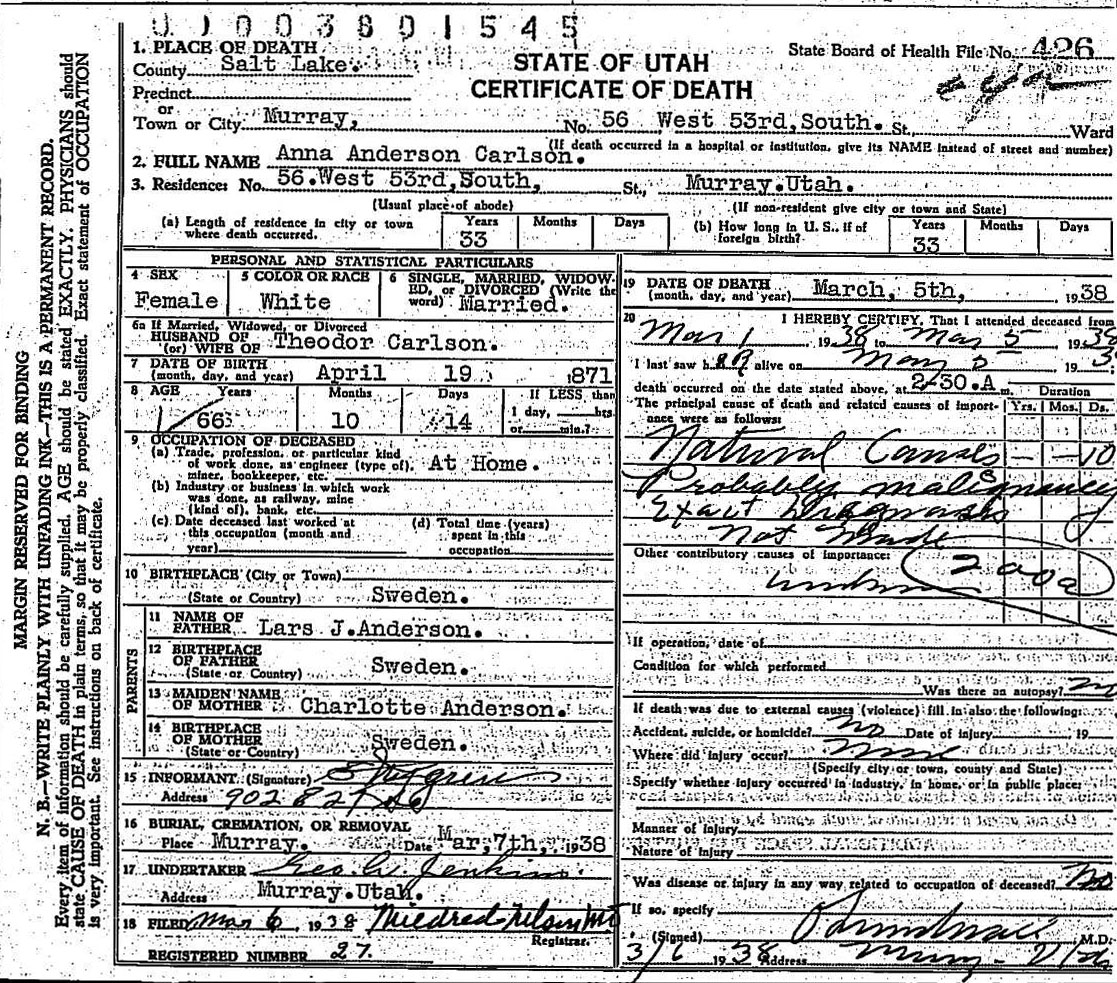 01003801545
STATE OF UTAH
CERTIFICATE OF DEATH
State Board of Health File No. 426
1. PLACE OF DEATH
County Salt Lake.
Precinct
or
Town or City Murray, No. 56 West 53rd, South. St., Ward
(If death occurred in a hospital or institution, give its NAME instead of street and number)
2. FULL NAME Anna Anderson Carlson.
3. Residence: No. 56.West 53rd,South, St., Murray.Utah.
(Usual place of abode) (If non-resident give city or town and State)
(a) Length of residence in city or town where death occurred. Years 33 Months Days
(b) How long in U. S., if of foreign birth? Years 33 Months Days
PERSONAL AND STATISTICAL PARTICULARS
4 SEX Female
5 COLOR OR RACE White
6 SINGLE, MARRIED, WIDOWED, or DIVORCED (Write the word) Married.
6a If Married, Widowed, or Divorced
HUSBAND OF
(or) WIFE OF Theodor Carlson.
7 DATE OF BIRTH
(month, day, and year) April 19 1871
8 AGE Years 66 Months 10 Days 14
If LESS than 1 day, hrs. or min.?
9 OCCUPATION OF DECEASED
(a) Trade, profession, or particular kind
of work done, as engineer (type of), At Home.
miner, bookkeeper, etc.
(b) Industry or business in which work
was done, as railway, mine
(kind of), bank, etc.
(c) Date deceased last worked at
this occupation (month and
year)
(d) Total time (years)
spent in this
occupation
10 BIRTHPLACE (City or Town)
(State or Country) Sweden.
PARENTS
11 NAME OF
FATHER Lars J.Anderson.
12 BIRTHPLACE
OF FATHER
(State or Country) Sweden.
13 MAIDEN NAME
OF MOTHER Charlotte Anderson.
14 BIRTHPLACE
OF MOTHER
(State or Country) Sweden.
15 INFORMANT (Signature)
Address 902 82
16 BURIAL, CREMATION, OR REMOVAL
Place Murray. Date Mar,7th, 1938
17 UNDERTAKER Geo. W Jenkins.
Address Murray.Utah.
18 FILED Mar 6 1938 Mildred
Registrar.
REGISTERED NUMBER 27.
19 DATE OF DEATH
(month, day, and year) March, 5th, 1938
20 I HEREBY CERTIFY, That I attended deceased from
Mar 1 1938 to Mar 5 1938
I last saw her alive on Mar 5 193
death occurred on the date stated above, at 2-30.A m. Duration
The principal cause of death and related causes of importance were as follows: Yrs. Mos. Ds.
Natural Causes — — 10
Probably malignancy
Exact Diagnosis
Not Made
Other contributory causes of importance: 200a
unknown
If operation, date of
Condition for which performed
Was there an autopsy? no
If death was due to external causes (violence) fill in also the following:
Accident, suicide, or homicide? no Date of injury 19
Where did injury occur? none
(Specify city or town, county and State)
Specify whether injury occurred in industry, in home, or in public place:
Manner of injury
Nature of injury
Was disease or injury in any way related to occupation of deceased? no
If so, specify
(Signed) M.D.
3/6 1938 Address Murray - Utah
MARGIN RESERVED FOR BINDING
N. B.—WRITE PLAINLY WITH UNFADING INK—THIS IS A PERMANENT RECORD.
Every item of information should be carefully supplied. AGE should be stated EXACTLY. PHYSICIANS should
state CAUSE OF DEATH in plain terms, so that it may be properly classified. Exact statement of OCCUPATION
is very important. See instructions on back of certificate.